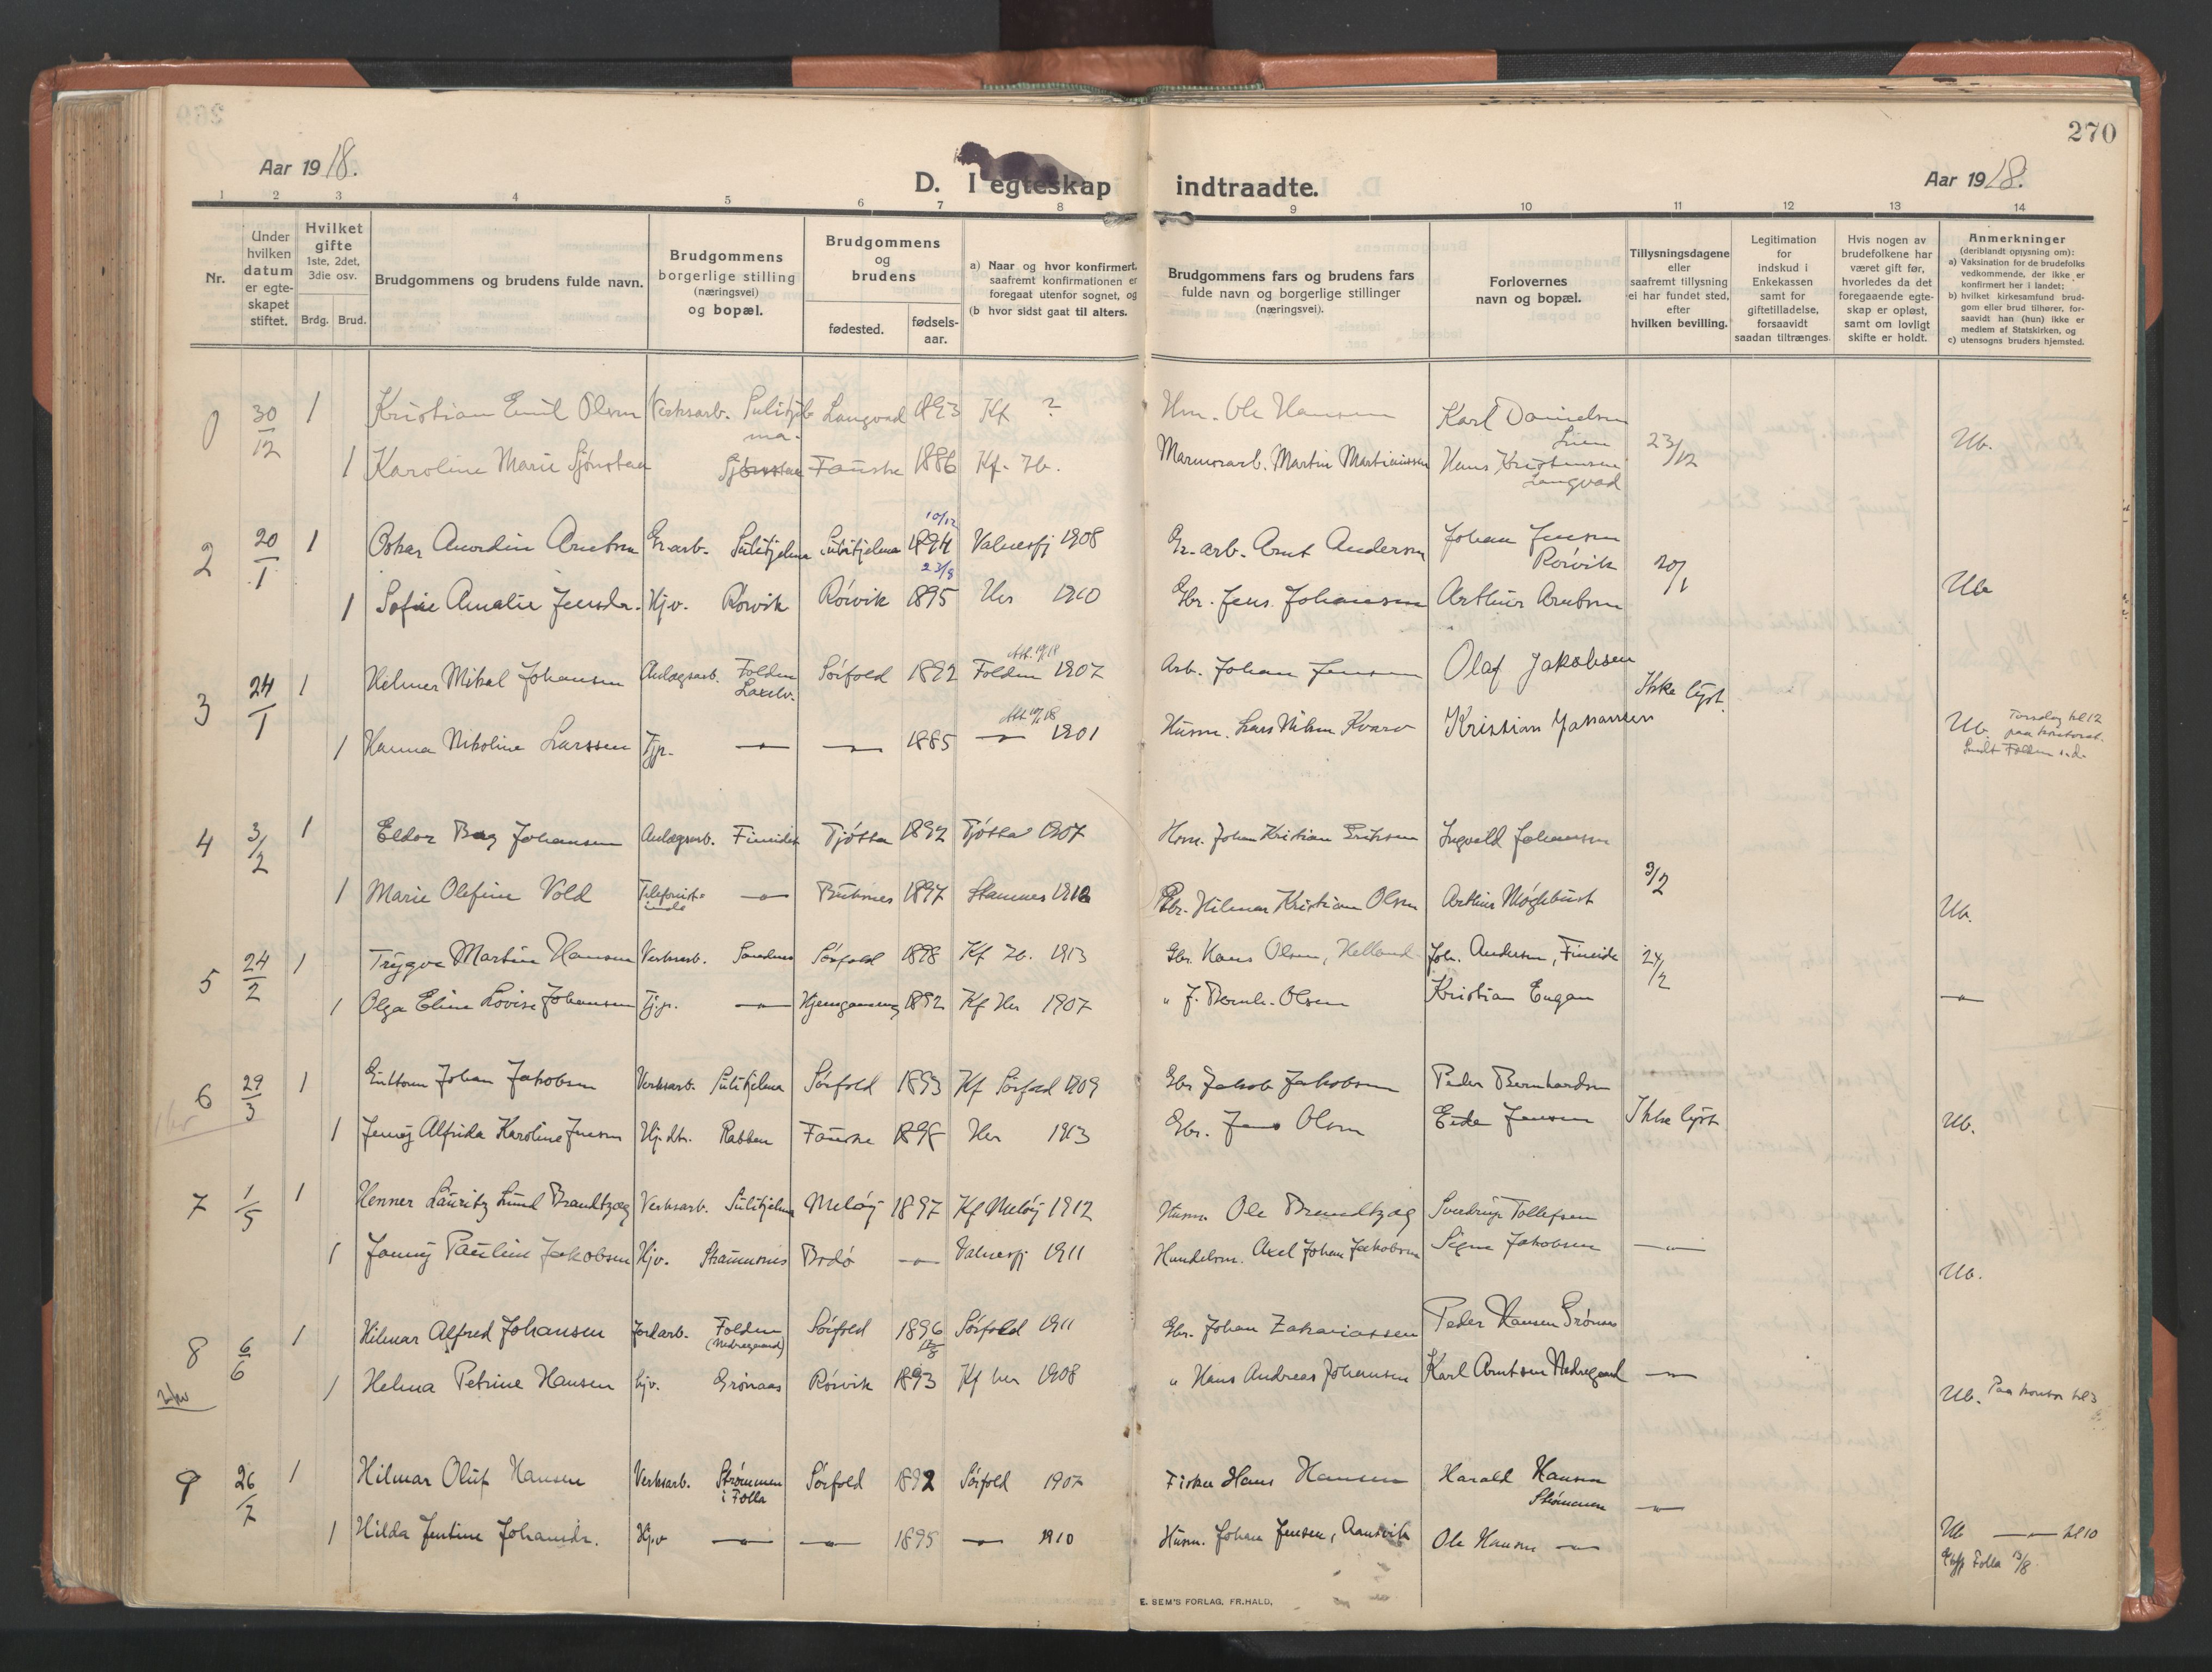 270
Aar 1918.
D. I egteskap indtraadte.
Aar 1918.
1 2 3 4 5 6 7 8 9 10 11 12 13 14
Nr.
Under hvilken datum er egte-skapet stiftet.
Hvilket gifte 1ste, 2det, 3die osv.
Brdg. Brud.
Brudgommens og brudens fulde navn.
Brudgommens borgerlige stilling (næringsvei) og bopæl.
Brudgommens og brudens
fødested.
fødsels-aar.
a) Naar og hvor konfirmert, saafremt konfirmationen er foregaat utenfor sognet, og
(b hvor sidst gaat til alters.
Brudgommens fars og brudens fars fulde navn og borgerlige stillinger (næringsvei).
Forlovernes navn og bopæl.
Tillysningsdagene eller saafremt tillysning ei har fundet sted, efter hvilken bevilling.
Legitimation for indskud i Enkekassen samt for giftetilladelse, forsaavidt saadan tiltrænges.
Hvis nogen av brudefolkene har været gift før, hvorledes da det foregaaende egte-skap er opløst, samt om lovligt skifte er holdt.
Anmerkninger (deriblandt oplysning om):
a) Vaksination for de brudefolks vedkommende, der ikke er konfirmert her i landet;
b) hvilket kirkesamfund brud-gom eller brud tilhører, for-saavidt han (hun) ikke er medlem af Statskirken, og
c) utensogns bruders hjemsted.
30/12 1 Kristian Emil Olsen Verksarb. Sulitjelma. Langvad 1893 Kf ? Hm. Ole Hansen Karl Danielsen Lien
1 Karoline Marie Sjönstaa Sjönstaa Fauske 1886 Kf. Marmorarb. Martin Martinussen Hans Kristensen Langvad 23/12 Ub.
10/12
2 20/1 1 Oskar Anordin Arntsen Gr.arb. Sulitjelma Sulitjelma 1894 Valnesfj 1908 Gr.arb. Arnt Andersen Johan Jensen Rörvik 20/1
23/8
1 Sofie Amalie Jensdr. Hjv. Rörvik Rörvik 1895 Her 1910 Gbr. Jens Johansen Arthur Arntsen Ub
3 24/1 1 Helmer Mikal Johansen Anlægsarb. Folden Sörfold 1892 Folden 1907 Arb. Johan Jensen Olaf Jakobsen Ikke lyst.
1 Hanna Nikoline Larssen Tjp. —„— —„— 1885 —„— 1901 Husm. Lars Kvarv Kristian Johansen Ub. Torsdag kl 12 paa kontoret.
4 3/2 1 Eldor Bag Johansen Anlægsarb. Fineidet Tjötta 1892 Tjötta 1907 Hm. Johan Kristian Eriksen Ingvald Johansen
1 Marie Olefine Vold Telefonistinde —„— Buksnes 1897 Stamnes 1912 Gbr. Hilmar Kristian Olsen Arthur 3/2 Ub.
5 24/2 1 Trygve Martin Hansen Verksarb. Sandnes Sörfold 1898 Kf 1913 Gbr. Hans Olsen, Helland Joh. Andersen, Fineide 24/2
1 Olga Eline Lovise Johansen Tjp. —„— Hjemgammen 1892 Kf Her 1907 „ J. Bernh. Olsen Kristian Engan —„—
6 29/3 1 Johan Jakobsen Verksarb. Sulitjelma Sörfold 1893 Kf Sörfold 1909 Gbr Jakob Jakobsen Peder Bernhardsen
1 Jenny Alfrida Karoline Jensen Hj.dtr. Rabben Fauske 1898 Her 1913 Gbr. Jens Olsen Eide Jensen Ikke lyst Ub.
7 1/5 1 Henner Lauritz Lund Brandtzæg Verksarb. Sulitjelma Melöy 1897 Kf Melöy 1912 Husm. Ole Brandtzæg Sverdrup Tollefsen
1 Jenny Pauline Jakobsen Hjv. Straumsnes Bodö —„— Valnesfj 1911 Handelsm. Axel Johan Jakobsen Signe Jakobsen —„— Ub.
8 6/6 1 Hilmar Alfred Johansen Jordarb. Folden (Nedregaard) Sörfold 1896 Sörfold 1911 Gbr. Johan Zakariassen Peder Hansen Grönaas
1 Helma Petrine Hansen hjv. Grönaas Rörvik 1893 Kf her 1908 „ Hans Andreas Johansen Karl Arntsen Nedregaard —„— Ub. Paa kontor kl 3
9 26/7 1 Hilmar Oluf Hansen Verksarb. Strömmen i Folla Sörfold 1892 Sörfold 1907 Fisker Hans Hansen Harald Hansen Strömmen —„—
1 Hilda Jentine Johansdr. Hjv —„— —„— 1895 —„— 1910 Husm. Johan Jensen, Aansvik Ole Hansen —„— Ub —„— kl 10
Folla 13/8
E. SEM'S FORLAG, FR.HALD.